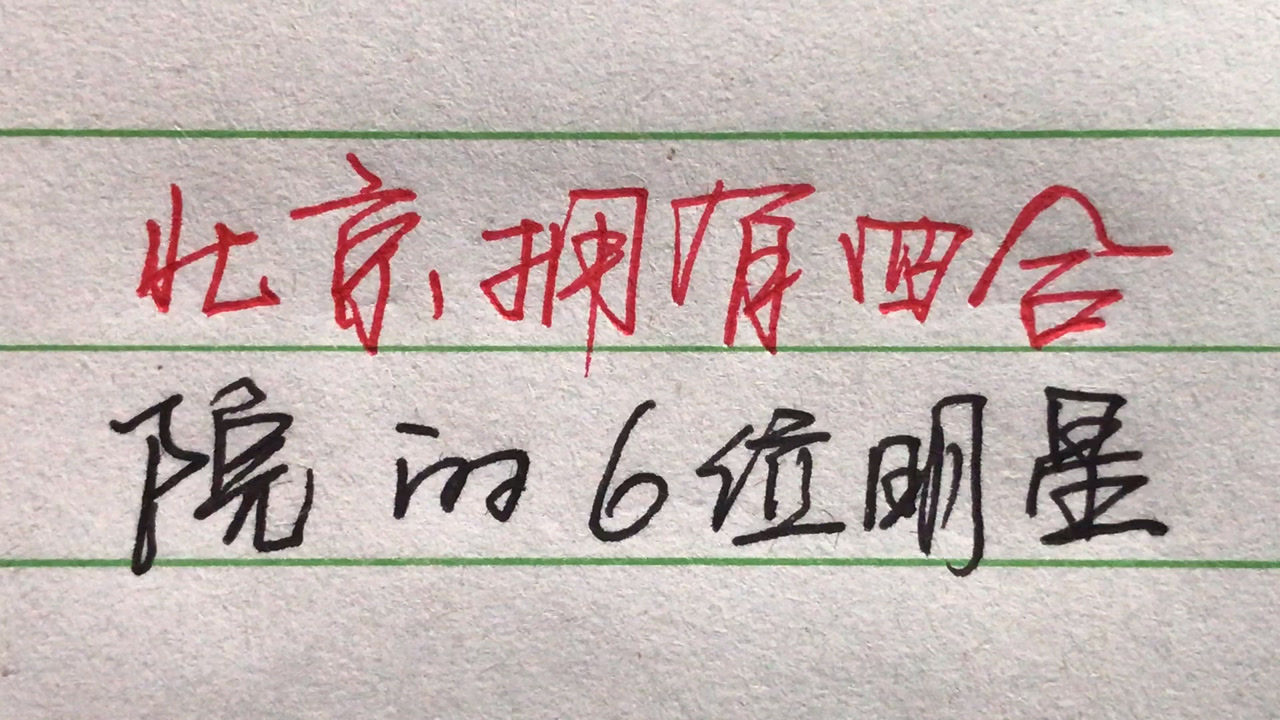 北京拥有四合
院的6位明星